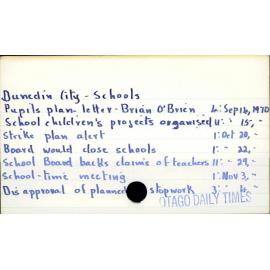 Dunedin City - Schools
Pupils plan letter - Brian O'Brien 4: Sep 16, 1970
School children's projects organised 11: " 15, -
Strike plan alert 1: Oct 20, -
Board would close schools 1: " 22, -
School Board backs claims of teachers 11: " 29, -
School-time meeting 1: Nov 3, -
Disapproval of planned stopwork 3: " 4, -
OTAGO DAILY TIMES